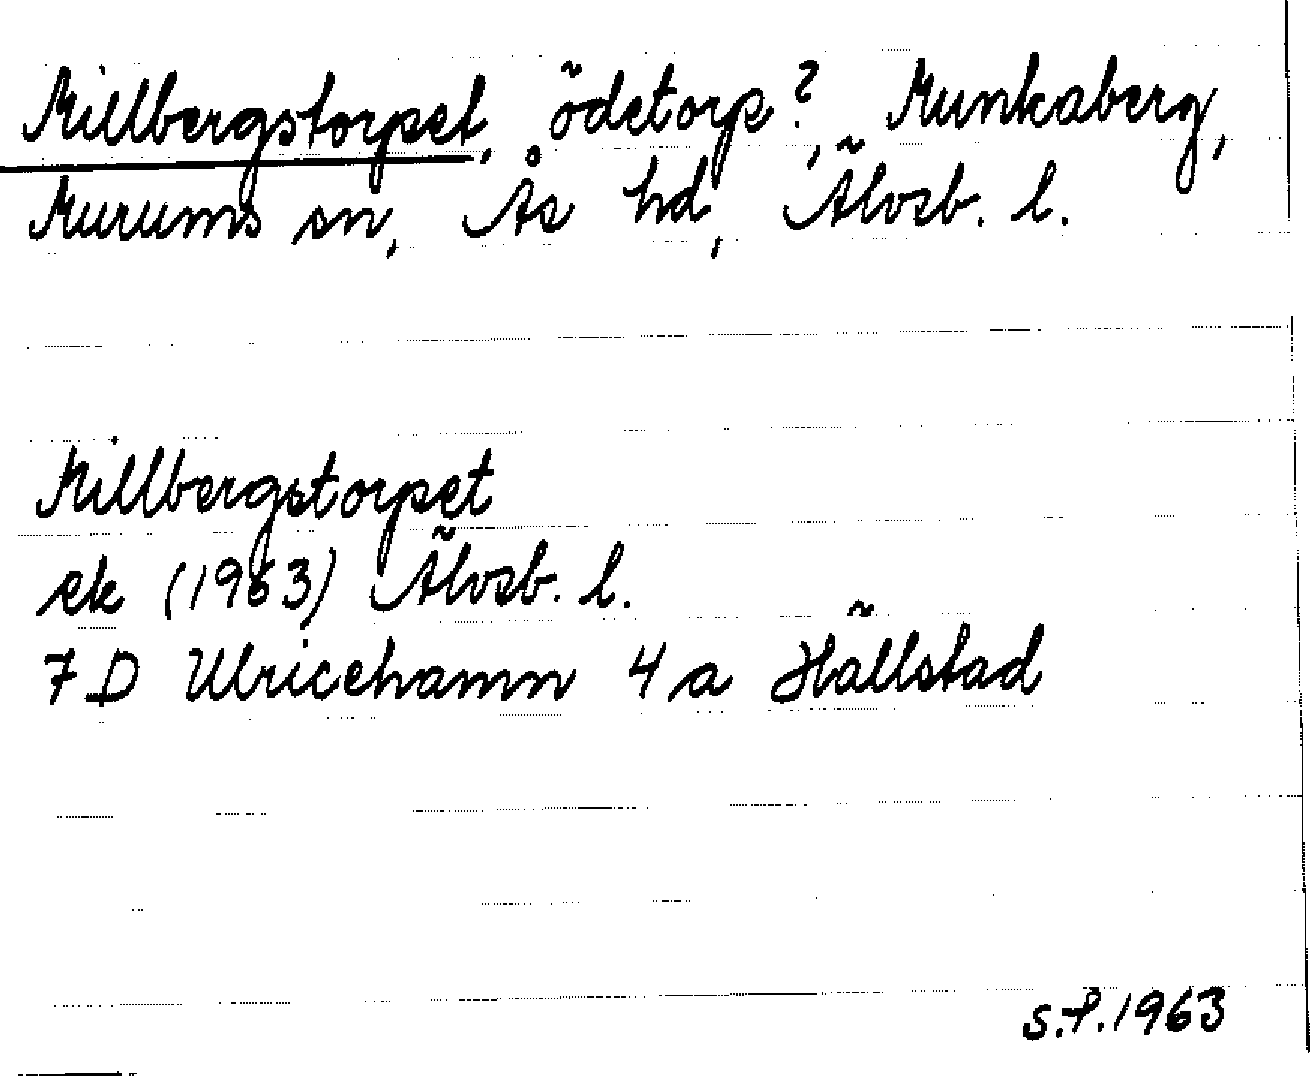 Millbergstorpet, ödetorp?, Munkaberg,
Murums sn, Ås hd, Älvsb. l.
Millbergstorpet
ek (1963) Älvsb. l.
7 D Ulricehamn 4 a Hällstad
S.F. 1963